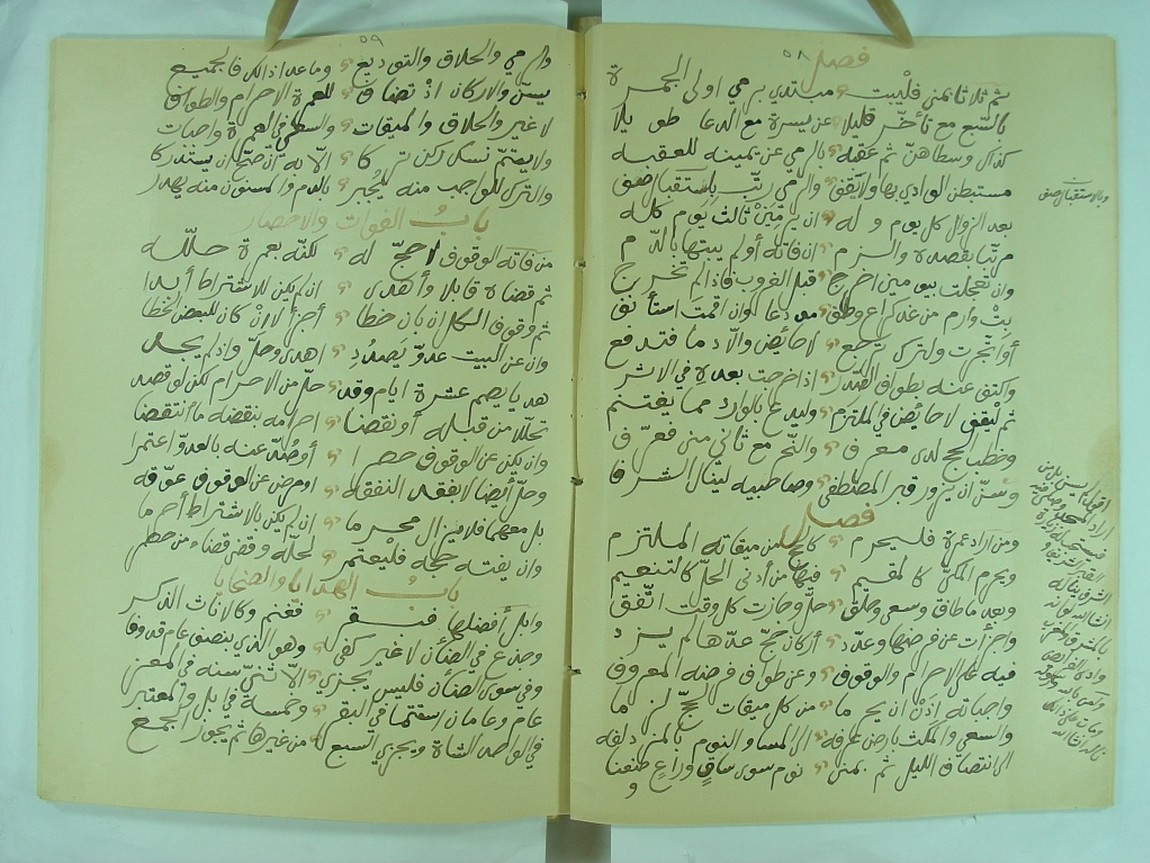 ٥٨
فصل
ثم ثلاثا بمنى فليبت مبتدي برمي اولى الجمرة
بالسبع مع تأخر قليلا عن يسرة مع الدعا طويلا
كذاك وسطاهن ثم عقبه بالرمي عن يمينه للعقبه
مستبطن الوادي بها ولا يقف والرمي رتب باستقبال صف
بعد الزوال كل يوم وله ان يرمين ثالث يوم كله
مرتبا بقصده والزم ان فاته أولم يبتها بالدم
وان تعجلت بيومين اخرج قبل الغروب فاذا لم تخرج
بت وارم من غد كراع وطف مودعا وان اقمت استأنف
أو اتجرت ولترك ترجع لا حائض والا دما فتدفع
واكتف عنه بطواف الصدر اذا خرجت بعده في الاشر
ثم ليقف لا حايض في الملتزم وليدع بالوارد مما يغتنم
وخطب الحج لدى معرف والنحر مع ثاني منى فعرف
وسن ان يزور قبر المصطفى وصاحبيه لينال الشرفا
فصل
ومن اراد عمرة فليحرم كالحج من ميقاته الملتزم
ويحرم المكي كالمقيم فيها من أدنى الحل كالتنعيم
وبعد ما طاف وسعى وحلق حل وجازت كل وقت اتفق
واجزأت عن فرضها وعدد أركان حج عدها لم يزد
فيه على الاحرام والوقوف وعن طواف فرضه المعروف
واجباته إذن ان يحرما من كل ميقات لحج لزما
والسعي والمكث بارض عرفه الى المسا والنوم بالمزدلفه
الى انتصاف الليل ثم بمنى نوم سوى ساق وراع طعنا
و
وبالاستقبال صف
٥٩
والرمي والحلاق والتوديع وما عدا ذلك فالجميع
يسن والاركان اذ تضاف للعمرة الاحرام والطواف
لا غير والحلاق والميقات والسعي في العمرة واجبات
ولا يتم نسك ركن تركا الا به ان صح ان يستدركا
والترك للواجب منه يجبر بالدم والمسنون منه يهدر
باب الفوات والاحصار
من فاته الوقوف لا حج له لكنه بعمرة حلله
ثم قضاه قابلا وأهدى ان لم يكن للاشتراط أبدا
ثم وقوف الكل ان بان خطا أجزأ لا ان كان للبعض الخطا
وان عن البيت عدو يصدد اهدى وحل واذ لم يجد
هديا يصم عشرة ايام وقد حل من الاحرام لكن لو قصد
تحللا من قبله أو نقضا احرامه بنقضه ما انتقضا
وان يكن عن الوقوف حصرا أو صد عنه بالعدو اعتمرا
وحل أيضا لا بفقد النفقه او مرض عن الوقوف عوقه
بل معهما فلا يزال محرما ان لم يكن بالاشتراط أحرما
وان يفته حجه فليعتمر لحله وقضّ قضاه من حظر
باب الهدايا والضحايا
وابل أفضلها فبقر فغنم وكالاناث الذكر
وجذع في الضأن لا غير كفى وهو الذي بنصف عام قد وفا
وفي سوى الضأن فليس يجزي الا ثني سنه في المعز
عام وعامان استتما في البقر وخمسة في ابل والمعتبر
في الواحد الشاة ويجزي السبع من غيرها ثم يجوز الجمع